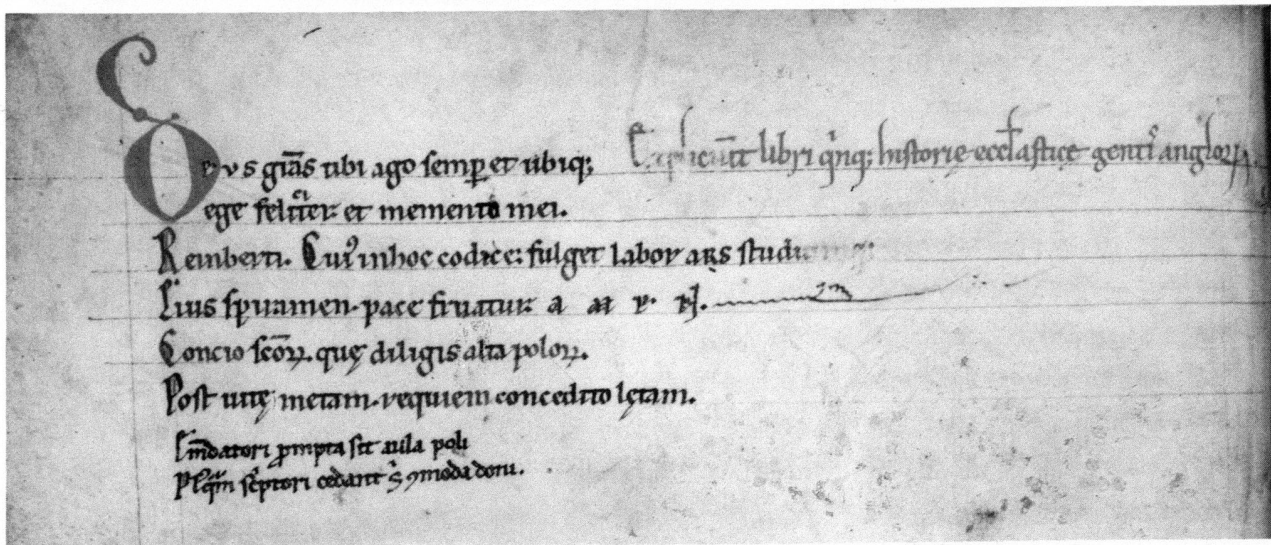 Devs gr̄as tibi ago semp̱ et ubiq; Expliciūt libri qͥnq; historię ecc̄lastice gentͥ anglorꝝ
ege felicͥter et memento mei.
Remberti. Cuiꝰ in hoc codice: fulget labor ars studi
Eius sp̱uamen. pace fruatur
Concio sc̄oꝝ. quę diligis alta poloꝝ.
Post uitę metam. requiem concedito lętam.
Em̄datori ꝓmpta sit aula poli
cedant ꝯmoda doni.